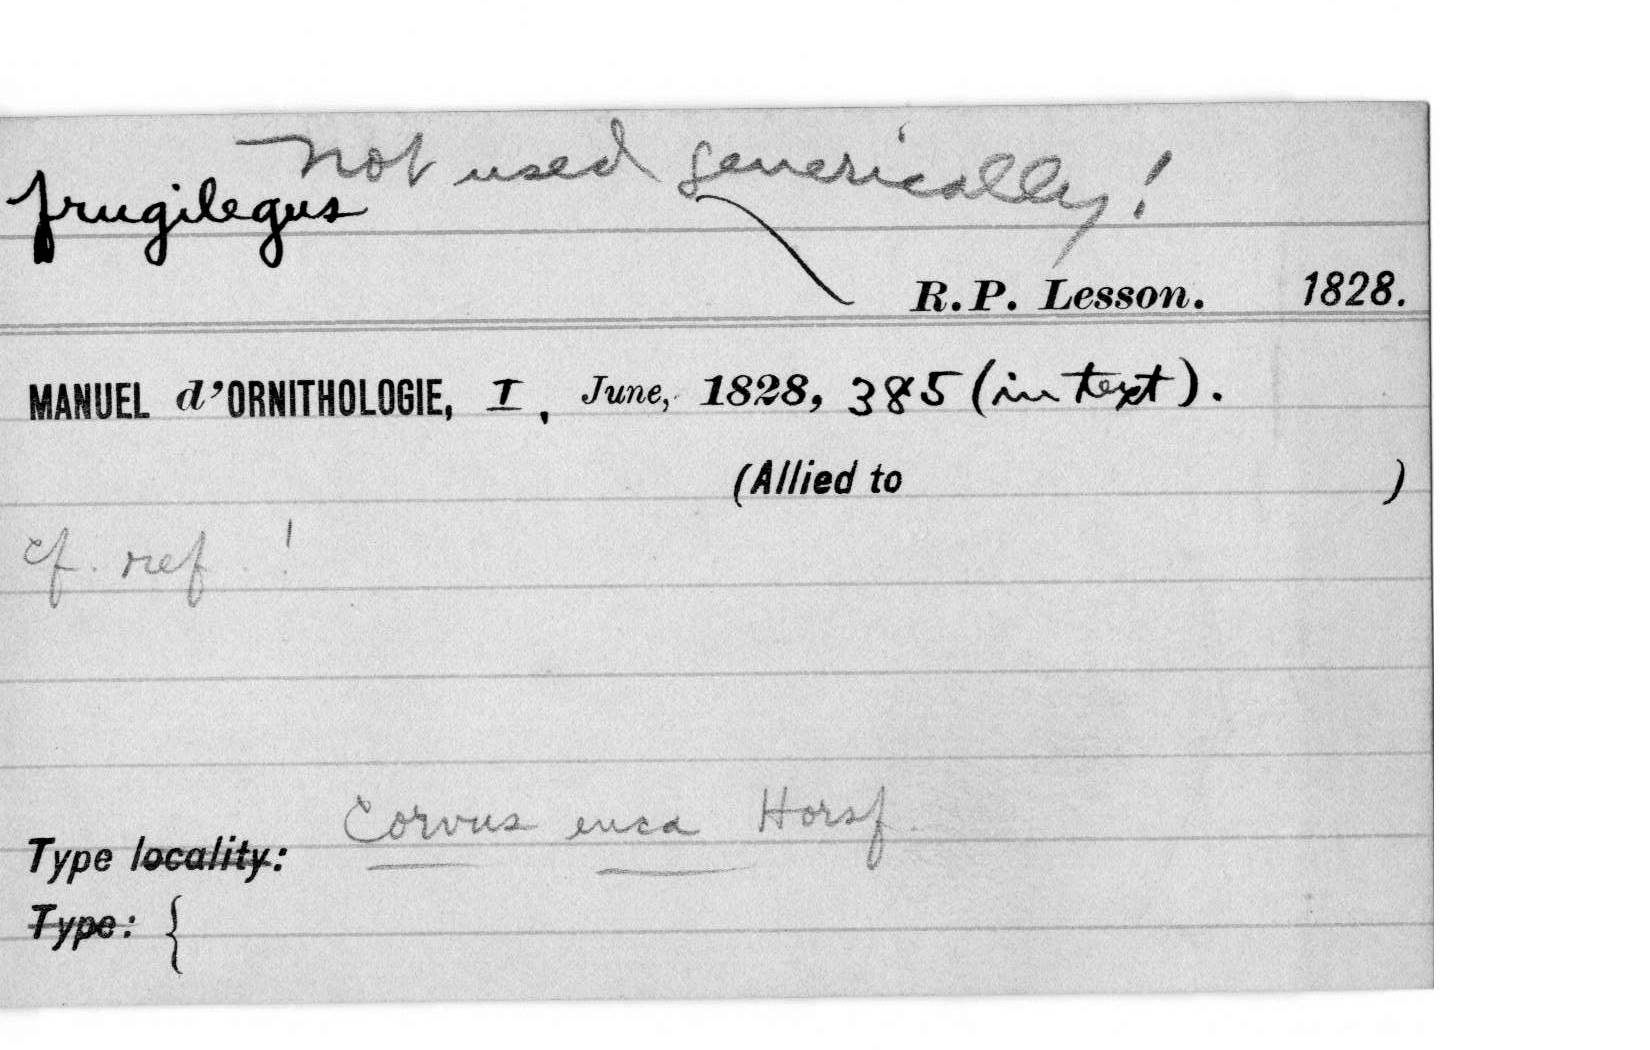 not used generically!
frugilegus
R.P. Lesson. 1828.
MANUEL d'ORNITHOLOGIE, I, June, 1828, 385 (in text).
(Allied to )
cf. ref. !
Corvus enca Horsf.
Type locality:
Type: {